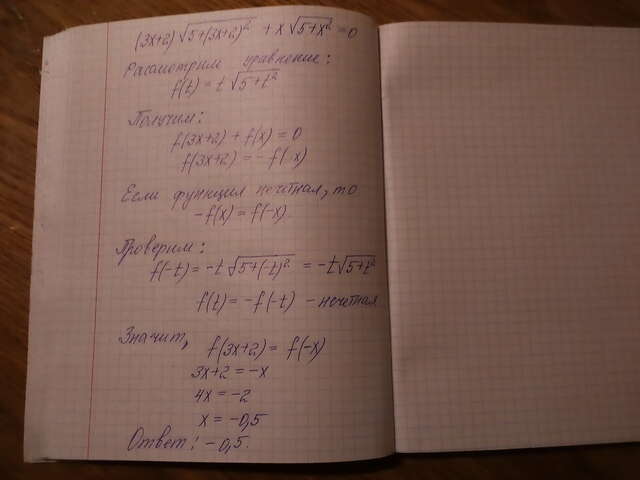 (3x+2)√5+(3x+2)² + x√5+x² = 0
Рассмотрим уравнение:
f(t) = t√5+t²
Получим:
f(3x+2) + f(x) = 0
f(3x+2) = -f(x)
Если функция нечетная, то
-f(x) = f(-x)
Проверим:
f(-t) = -t√5+(-t)² = -t√5+t²
f(t) = -f(-t) - нечетная
Значит, f(3x+2) = f(-x)
3x+2 = -x
4x = -2
x = -0,5
Ответ: -0,5.